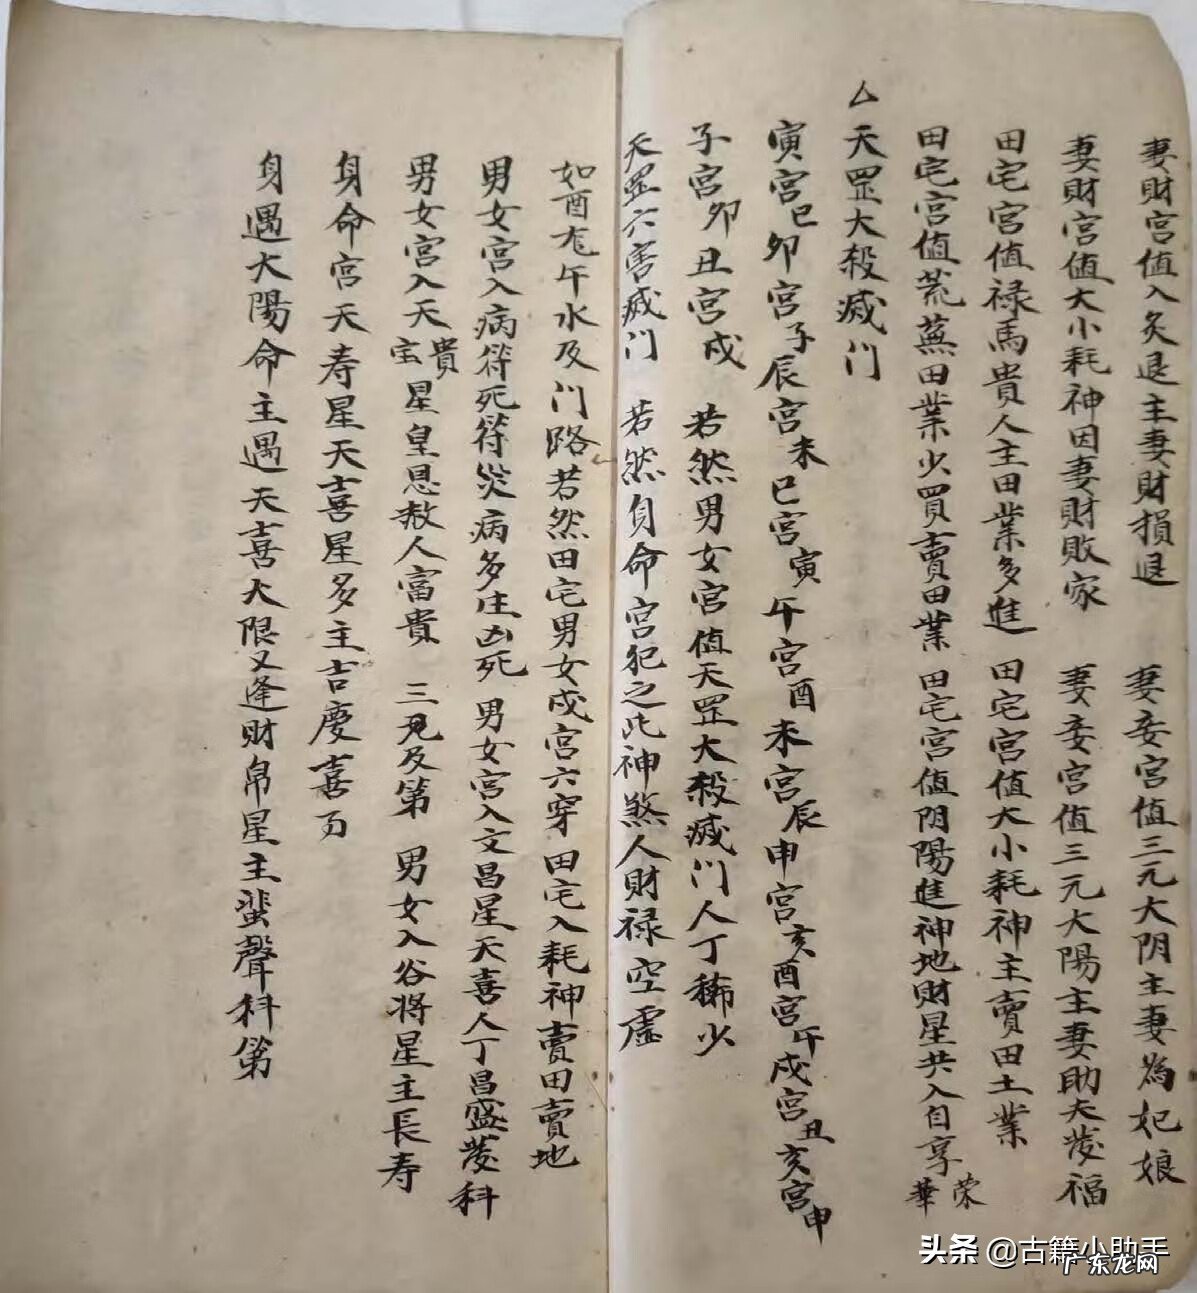 妻財宮值入炙退主妻財損退　妻妾宮值三元大阴主妻為妃娘
妻財宮值大小耗神因妻財敗家　妻妾宮值三元大陽主妻助夫發福
田宅宮值禄馬貴人主田業多進　田宅宮值大小耗神主賣田土業
田宅宮值荒蕪田業少買賣田業　田宅宮值阴陽進神地財星共入自享榮華
△天罡大殺滅门
寅宮巳卯宮子辰宮未巳宮寅午宮酉未宮辰申宮亥酉宮午戌宮丑亥宮申
子宮卯丑宮戌　若然男女宮值天罡大殺滅门人丁稀少
天罡六害滅门　若然身命宮犯之此神煞人財禄空虛
如酉充午水及门路若然田宅男女戌宮六穿　田宅入耗神賣田賣地
男女宮入病符死符災病多生凶死　男女宮入文昌星天喜人丁昌盛發科
男女宮入天貴宝星皇恩赦人富貴　三見及第　男女入谷将星主長寿
身命宮天寿星天喜星多主吉慶喜万
身遇太陽命主遇天喜大限又逢財帛星主蜚聲科第
头条 @古籍小助手
广东龙网